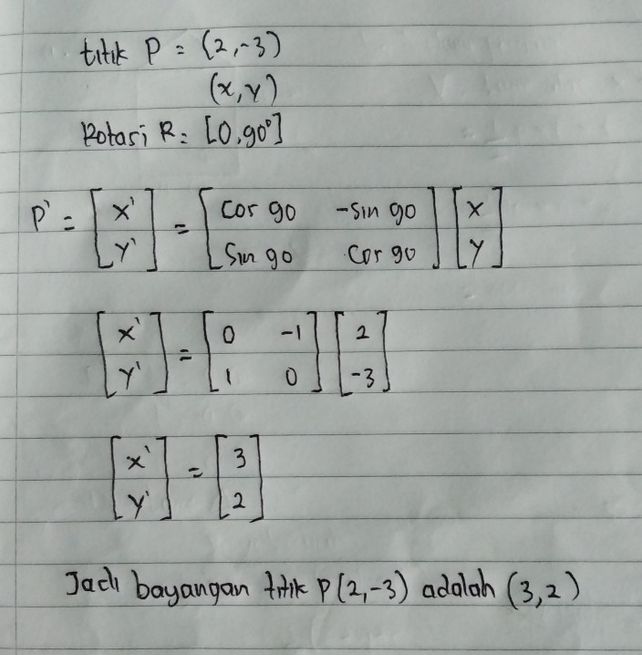 titik P = (2,-3)
(x,y)
Rotasi R = [0,90°]
P' = [x' y'] = [cos 90 -sin 90 sin 90 cos 90] [x y]
[x' y'] = [0 -1 1 0] [2 -3]
[x' y'] = [3 2]
Jadi bayangan titik P(2,-3) adalah (3,2)